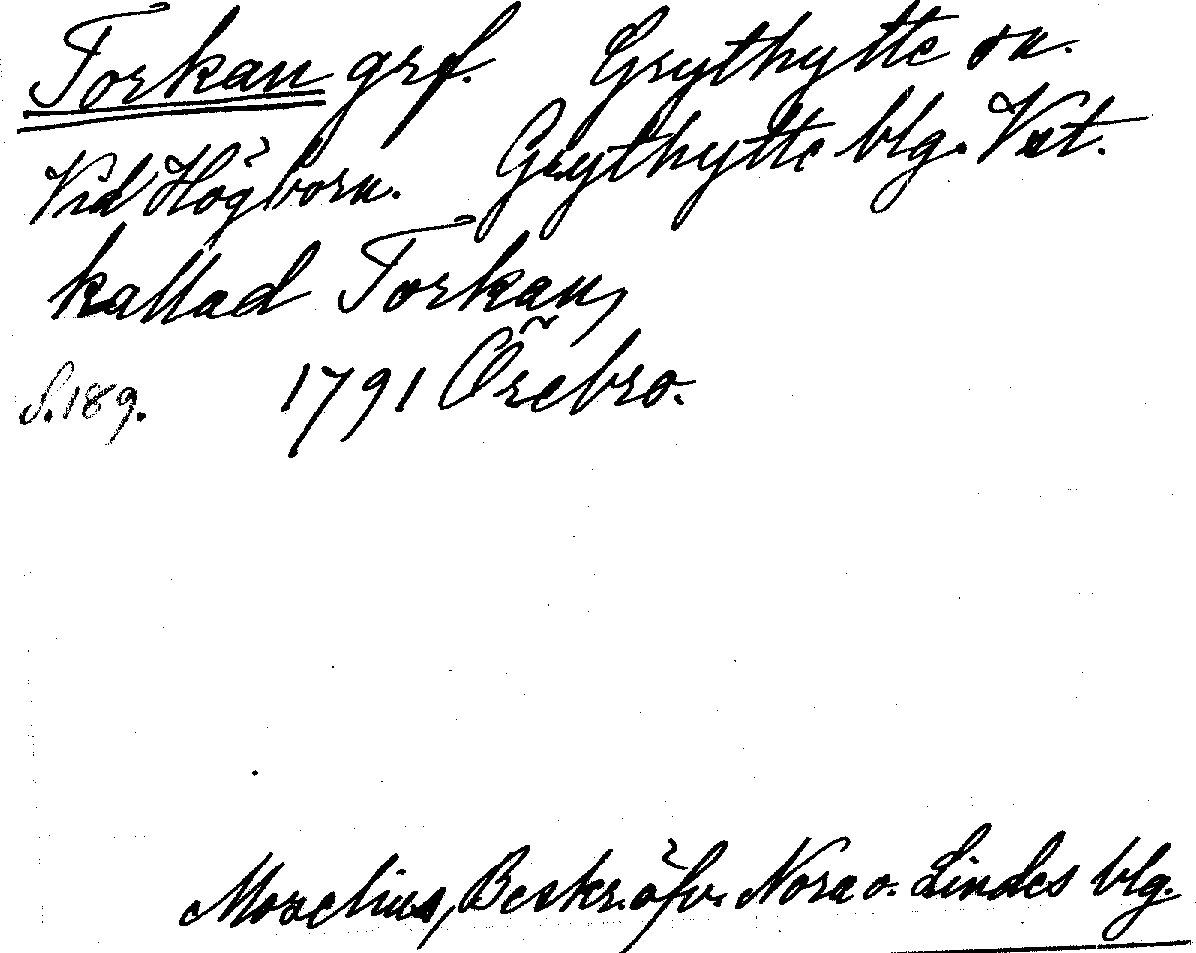 Torkan grf. Grythytte sn.
Vid Högborn. Grythytte blg. Vst.
kallad Torkan,
S. 189. 1791 Örebro.
Moxelius, Beskr. öfv. Nora o. Lindes blg.